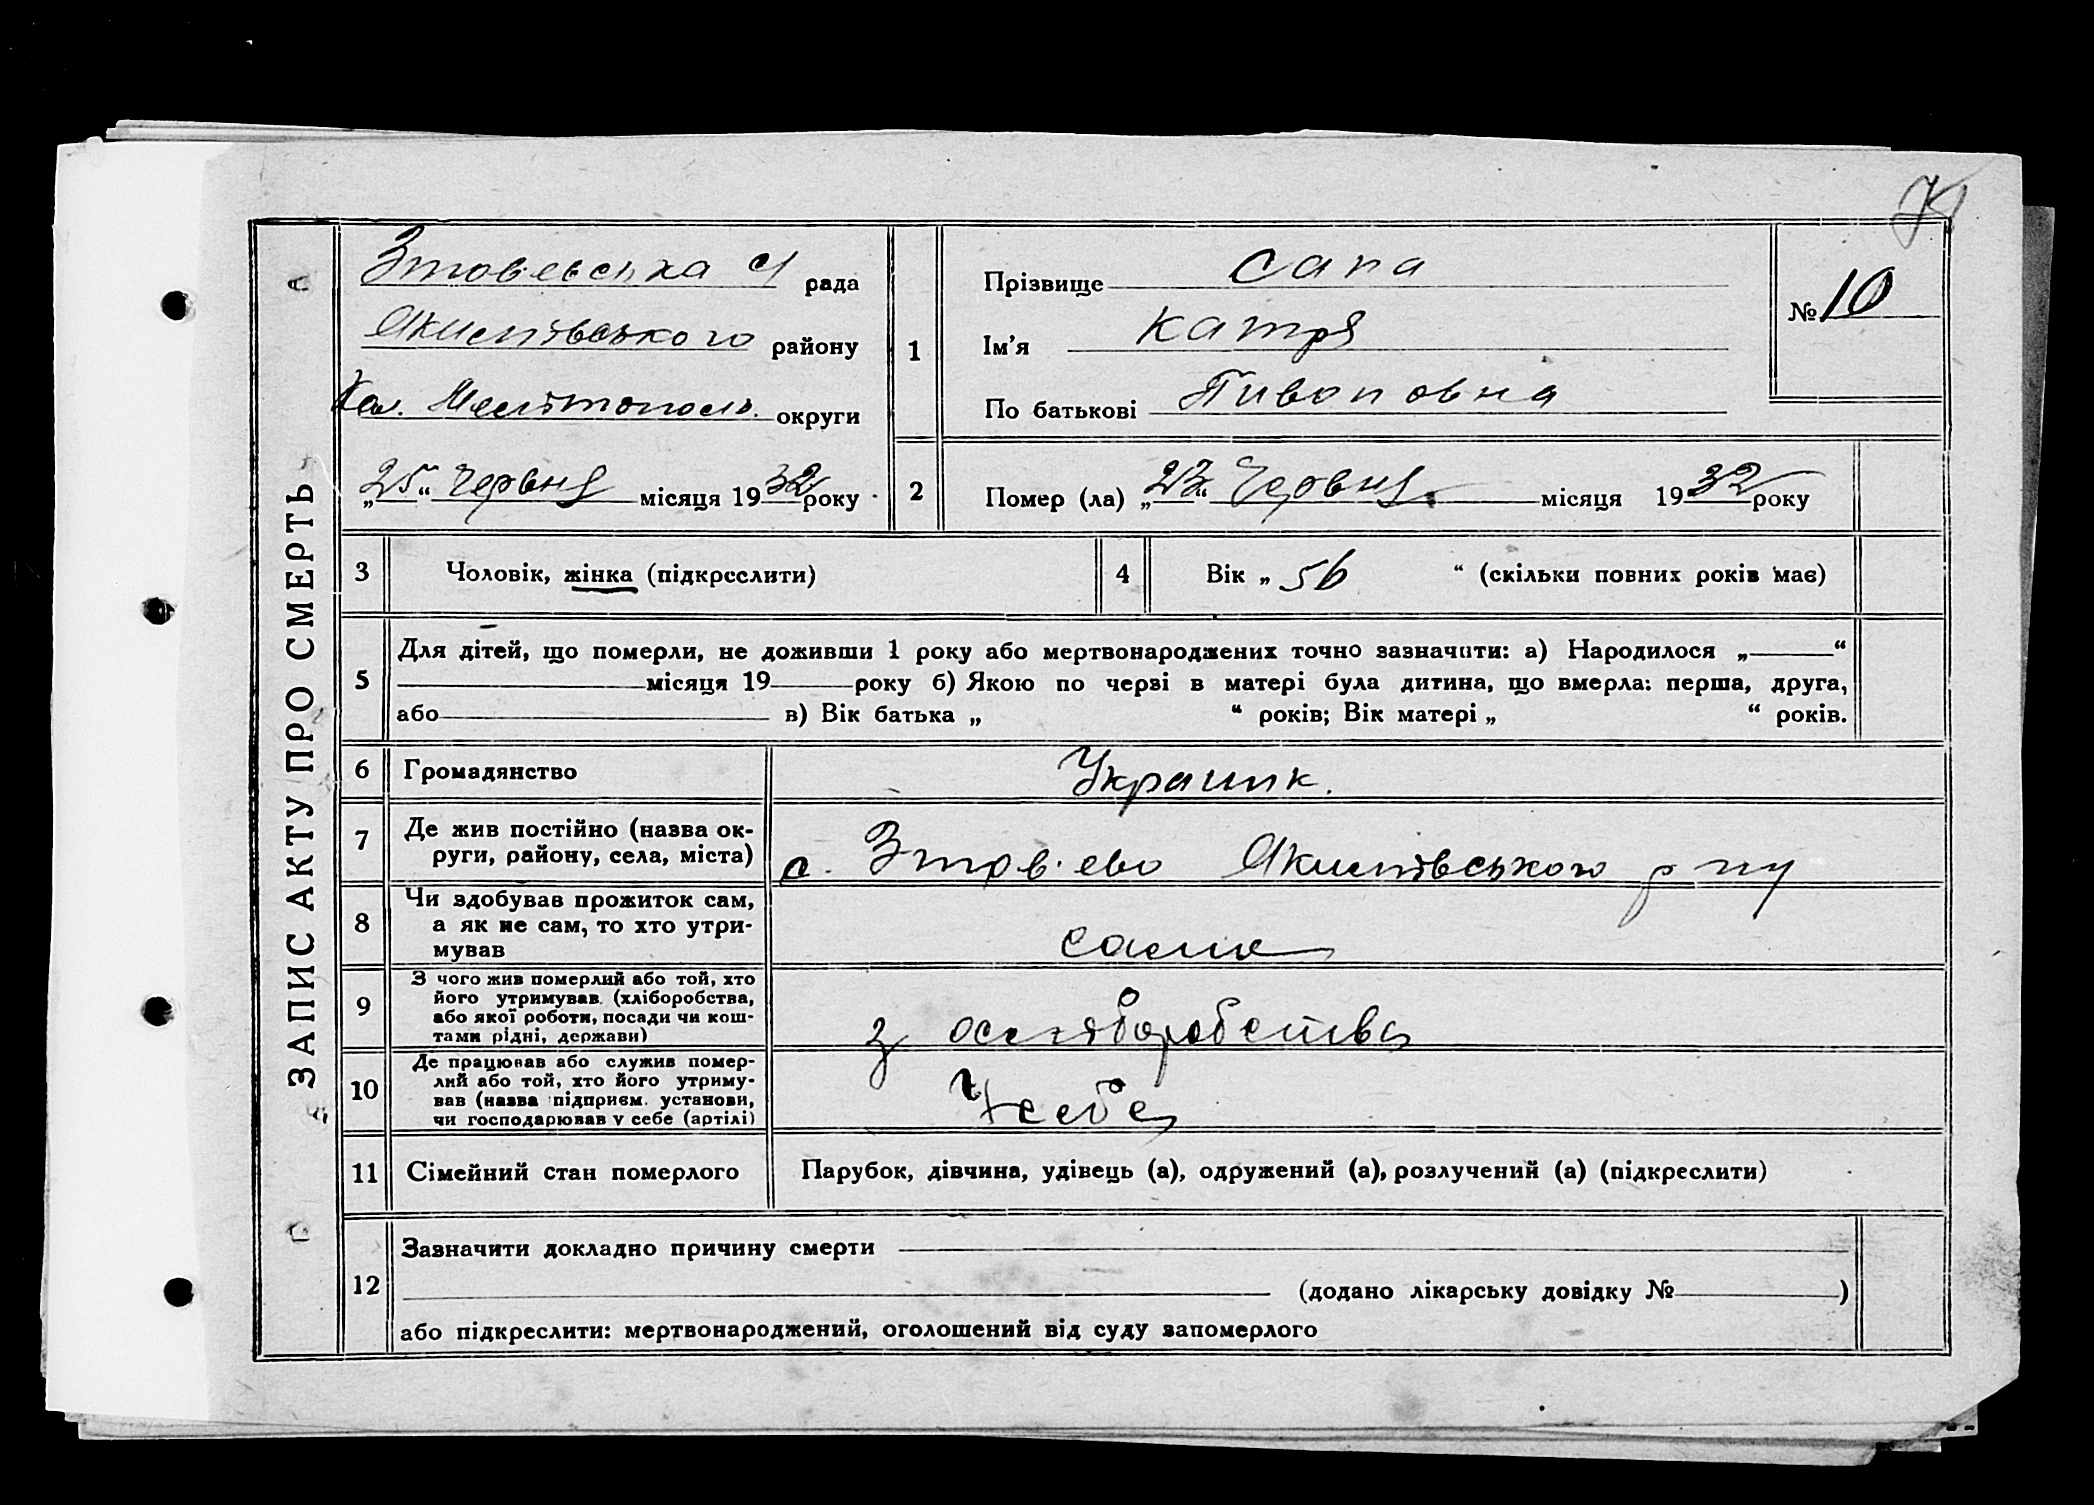 ЗАПИС АКТУ ПРО СМЕРТЬ
рада
Якимівського району
Мелітополь. округи
„25“ Червня місяця 1932 року
1
Прізвище Сапа
Ім'я Катря
По батькові
№ 10
2
Помер (ла) „23“ Червня місяця 1932 року
3
Чоловік, жінка (підкреслити)
4
Вік „56“ (скільки повних років має)
5
Для дітей, що померли, не доживши 1 року або мертвонароджених точно зазначити: а) Народилося „ “
місяця 19 року б) Якою по черзі в матері була дитина, що вмерла: перша, друга,
або в) Вік батька „ “ років; Вік матері „ “ років.
6
Громадянство
Україинк.
7
Де жив постійно (назва ок-
руги, району, села, міста)
с. Якимівського р-ну
8
Чи здобував прожиток сам,
а як не сам, то хто утри-
мував
сама
9
З чого жив померлий або той, хто
його утримував (хліборобства,
або якої роботи, посади чи кош-
тами рідні, держави)
з
10
Де працював або служив помер-
лий або той, хто його утриму-
вав (назва підприєм. установи,
чи господарював у себе (артілі)
У себе
11
Сімейний стан померлого
Парубок, дівчина, удівець (а), одружений (а), розлучений (а) (підкреслити)
12
Зазначити докладно причину смерти
(додано лікарську довідку № )
або підкреслити: мертвонароджений, оголошений від суду запомерлого